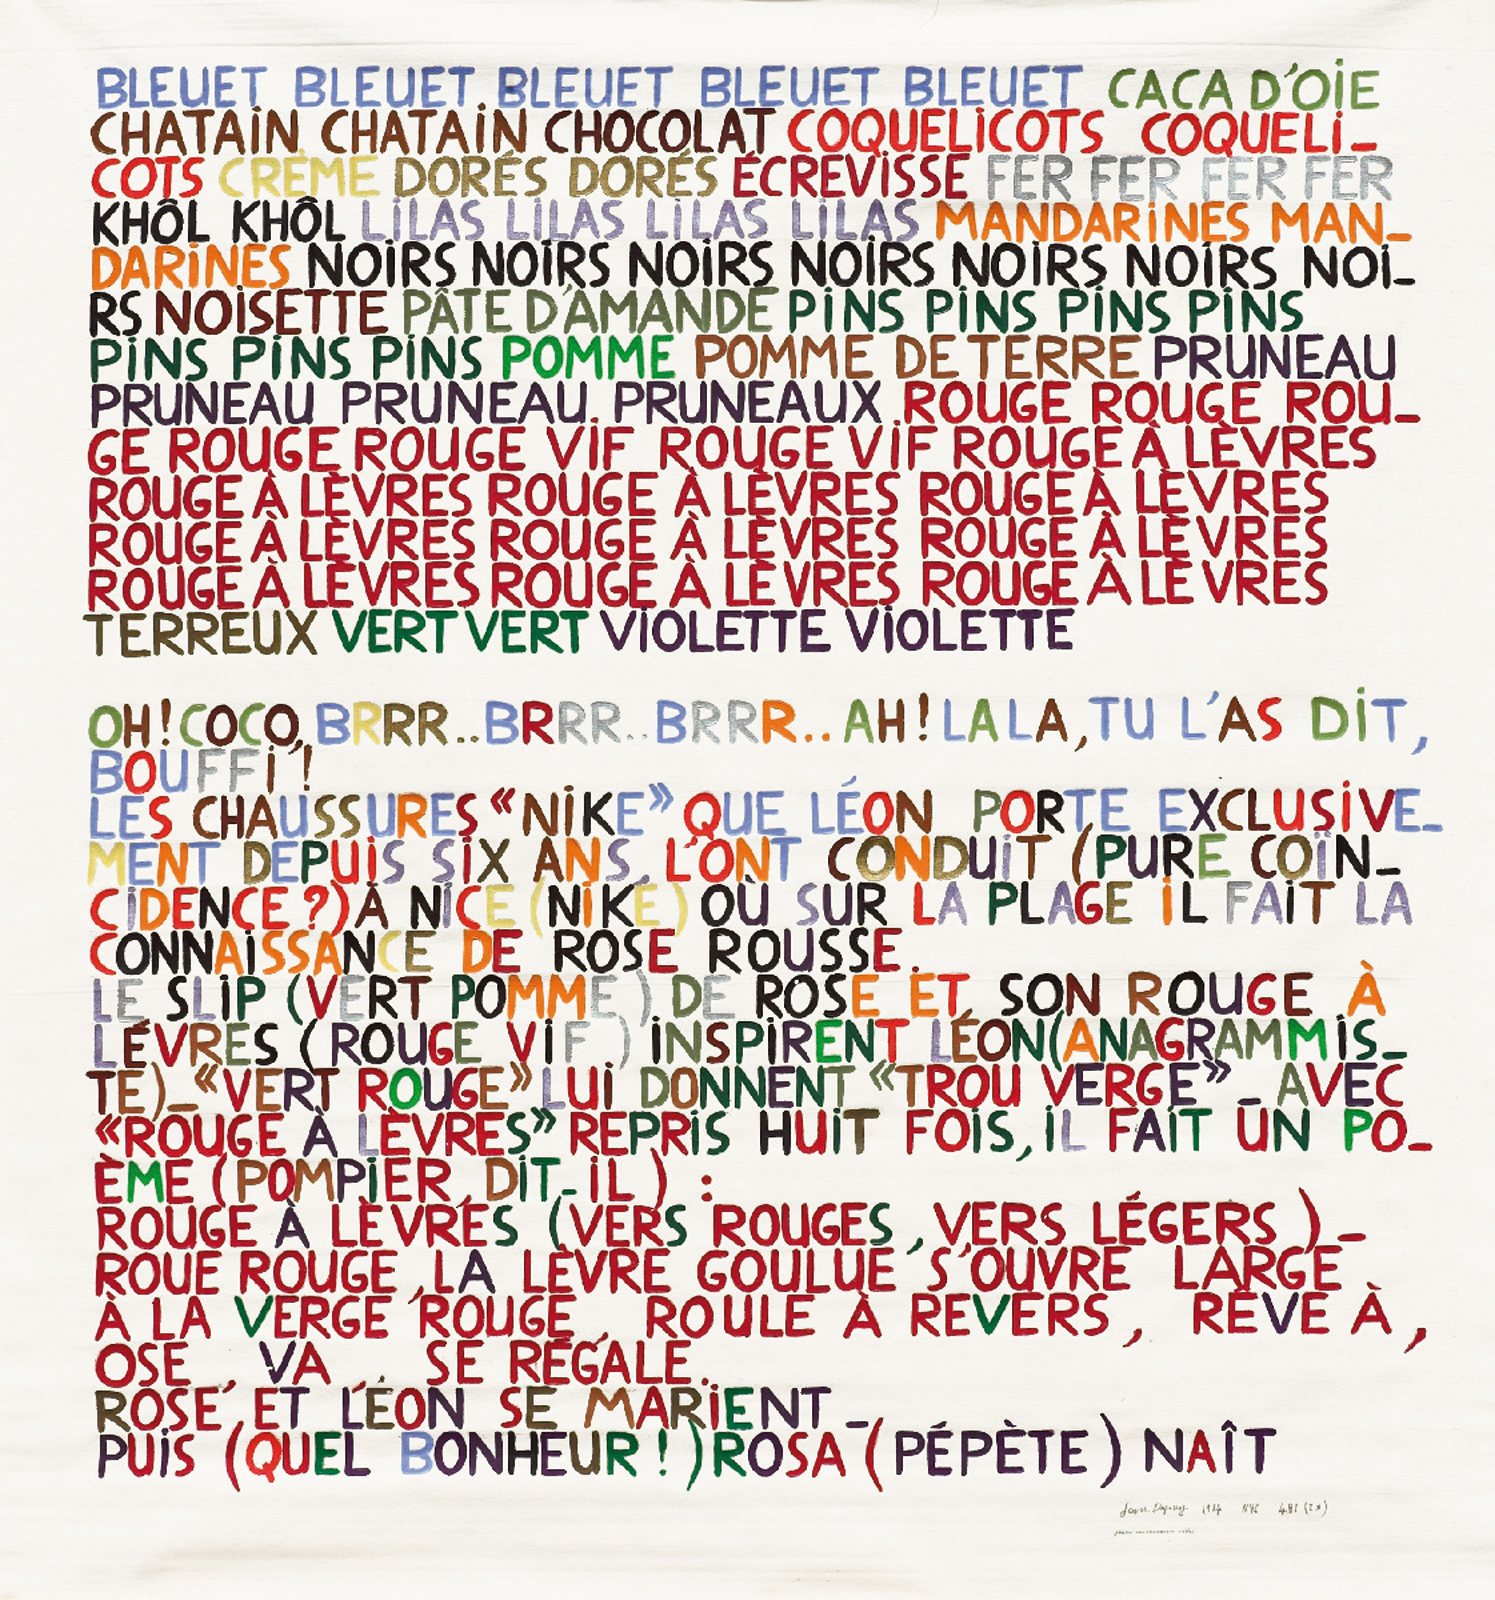 BLEUET BLEUET BLEUET BLEUET BLEUET CACA D'OIE
CHATAIN CHATAIN CHOCOLAT COQUELICOTS COQUELI_
COTS CRÈME DORÉS DORÉS ÉCREVISSE FER FER FER FER
KHÔL KHÔL LILAS LILAS LILAS LILAS MANDARINES MAN_
DARINES NOIRS NOIRS NOIRS NOIRS NOIRS NOIRS NOI_
RS NOISETTE PÂTE D'AMANDE PINS PINS PINS PINS
PINS PINS PINS POMME POMME DE TERRE PRUNEAU
PRUNEAU PRUNEAU PRUNEAUX ROUGE ROUGE ROU_
GE ROUGE ROUGE VIF ROUGE VIF ROUGE À LÈVRES
ROUGE À LÈVRES ROUGE À LÈVRES ROUGE À LÈVRES
ROUGE À LÈVRES ROUGE À LÈVRES ROUGE À LÈVRES
ROUGE À LÈVRES ROUGE À LÈVRES ROUGE À LÈVRES
TERREUX VERT VERT VIOLETTE VIOLETTE
OH! COCO, BRRR.. BRRR.. BRRR.. AH! LALA, TU L'AS DIT,
BOUFFI!
LES CHAUSSURES «NIKE» QUE LÉON PORTE EXCLUSIVE_
MENT DEPUIS SIX ANS, L'ONT CONDUIT (PURE COÏN_
CIDENCE?) À NICE (NIKÉ) OÙ SUR LA PLAGE IL FAIT LA
CONNAISSANCE DE ROSE ROUSSE.
LE SLIP (VERT POMME) DE ROSE ET SON ROUGE À
LÈVRES (ROUGE VIF) INSPIRENT LÉON (ANAGRAMMIS_
TE)_ «VERT ROUGE» LUI DONNENT «TROU VERGE» _ AVEC
«ROUGE À LÈVRES» REPRIS HUIT FOIS, IL FAIT UN PO_
ÈME (POMPIER, DIT_IL) :
ROUGE À LÈVRES (VERS ROUGES, VERS LÉGERS) _
ROUE ROUGE, LA LÈVRE GOULUE S'OUVRE LARGE
À LA VERGE ROUGE, ROULE À REVERS, RÊVE À,
OSE, VA, SE RÉGALE.
ROSE ET LÉON SE MARIENT _
PUIS (QUEL BONHEUR!) ROSA (PÉPÈTE) NAÎT